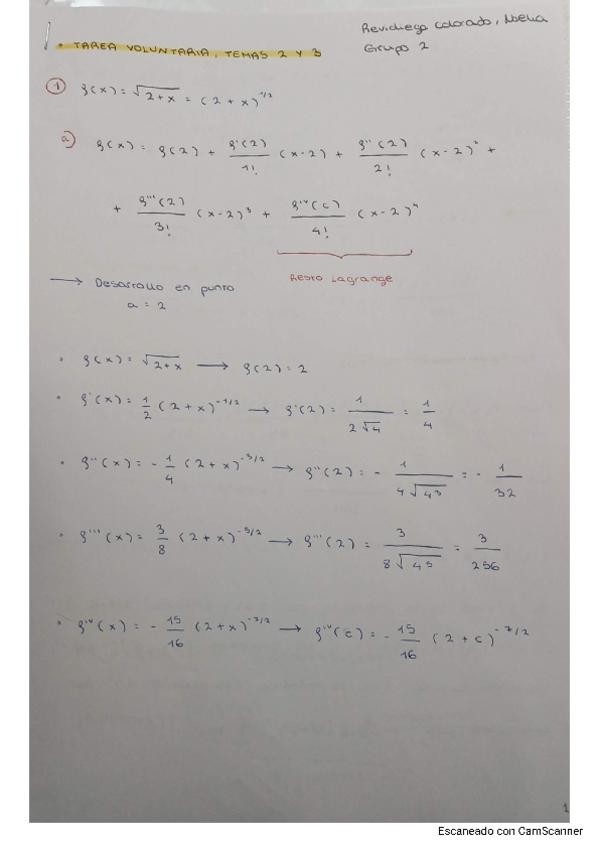 Grupo 2
• TAREA VOLUNTARIA, TEMAS 2 Y 3
① f(x) = √(2+x) = (2+x)^1/2
a) f(x) = f(2) + f'(2)/1! (x-2) + f''(2)/2! (x-2)² +
+ f'''(2)/3! (x-2)³ + f^iv(c)/4! (x-2)⁴
Resto Lagrange
→ Desarrollo en punto
a = 2
• f(x) = √(2+x) → f(2) = 2
• f'(x) = 1/2 (2+x)^-1/2 → f'(2) = 1/(2√4) = 1/4
• f''(x) = - 1/4 (2+x)^-3/2 → f''(2) = - 1/(4√4³) = - 1/32
• f'''(x) = 3/8 (2+x)^-5/2 → f'''(2) = 3/(8√4⁵) = 3/256
• f^iv(x) = - 15/16 (2+x)^-7/2 → f^iv(c) = - 15/16 (2+c)^-7/2
1
Escaneado con CamScanner